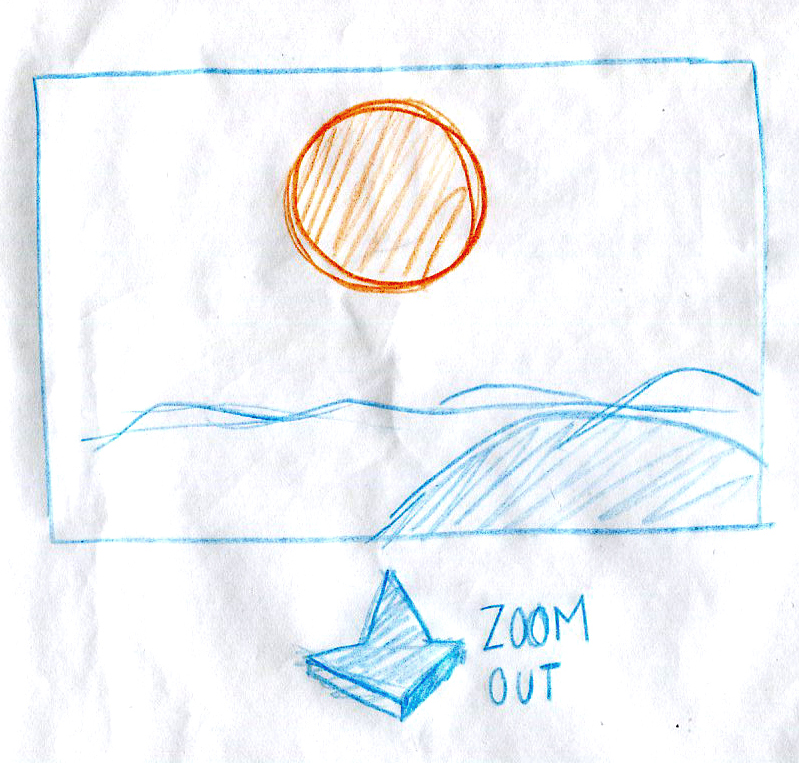 ZOOM
OUT